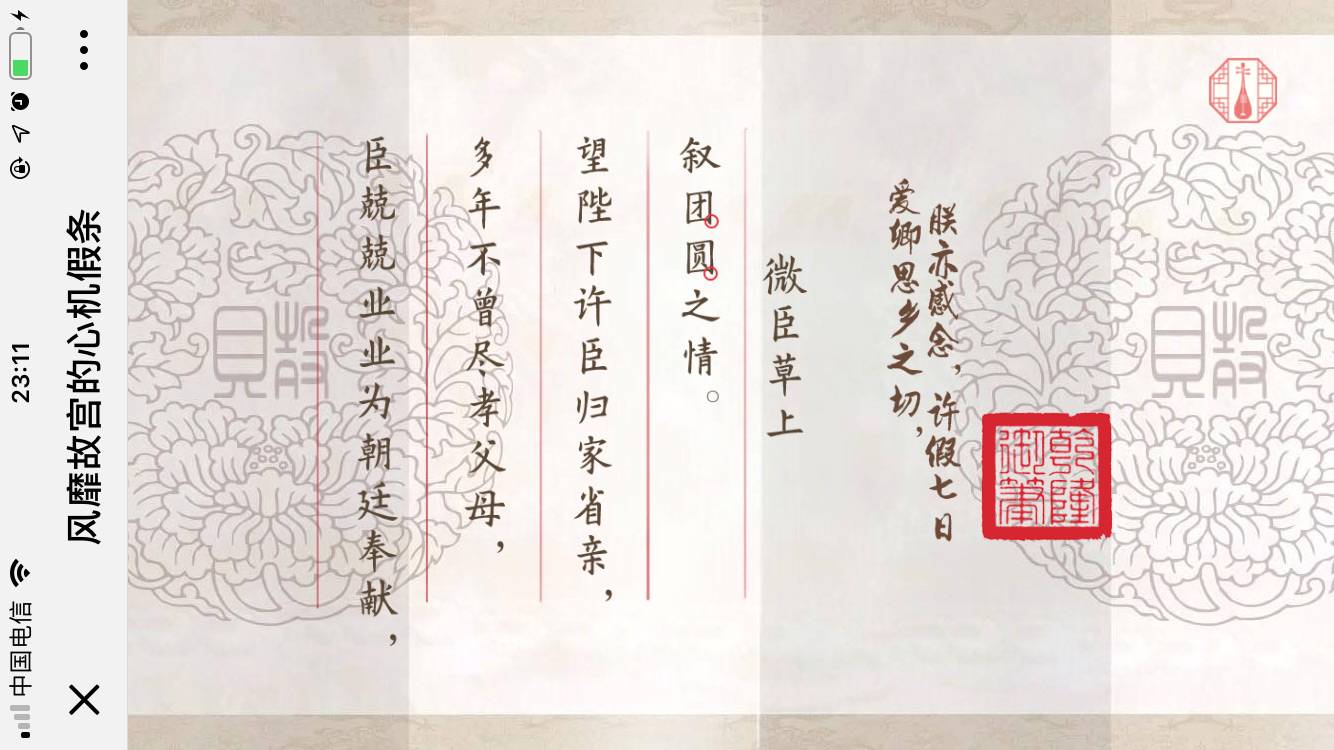 中国电信
23:11
风靡故宫的心机假条
臣兢兢业业为朝廷奉献，
多年不曾尽孝父母，
望陛下许臣归家省亲，
叙团圆之情。
微臣草上
爱卿思乡之切，
朕亦感念，许假七日
乾隆
御筆